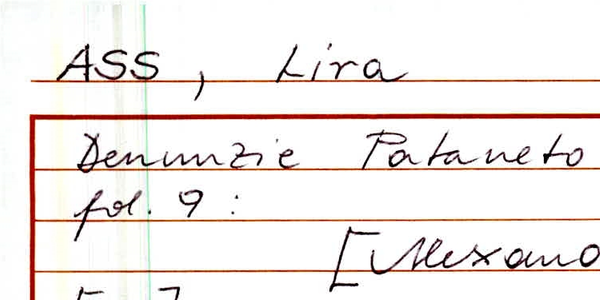 ASS, Lira
Denunzie Pataneto
fol. 9:
[Alexand
[ ]